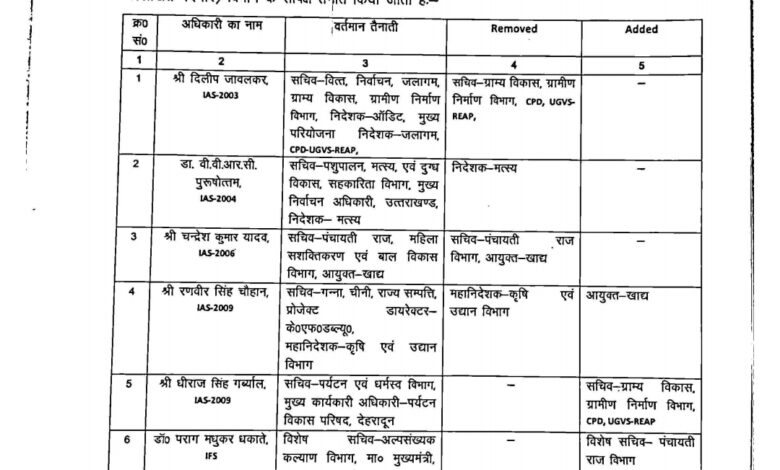 क्र0 सं0 | अधिकारी का नाम | वर्तमान तैनाती | Removed | Added
1 | 2 | 3 | 4 | 5
1 | श्री दिलीप जावलकर, | सचिव–वित्त, निर्वाचन, जलागम, | सचिव–ग्राम्य विकास, ग्रामीण | –
IAS-2003 | ग्राम्य विकास, ग्रामीण निर्माण | निर्माण विभाग, CPD, UGVS-
विभाग, निदेशक–ऑडिट, मुख्य | REAP,
परियोजना निदेशक–जलागम,
CPD-UGVS-REAP,
2 | डा. वी.वी.आर.सी. | सचिव–पशुपालन, मत्स्य, एवं दुग्ध | निदेशक–मत्स्य | –
पुरूषोत्तम, | विकास, सहकारिता विभाग, मुख्य
IAS-2004 | निर्वाचन अधिकारी, उत्तराखण्ड,
निदेशक– मत्स्य
3 | श्री चन्द्रेश कुमार यादव, | सचिव–पंचायती राज, महिला | सचिव–पंचायती राज | –
IAS-2006 | सशक्तिकरण एवं बाल विकास | विभाग, आयुक्त–खाद्य
विभाग, आयुक्त–खाद्य
4 | श्री रणवीर सिंह चौहान, | सचिव–गन्ना, चीनी, राज्य सम्पत्ति, | महानिदेशक–कृषि एवं | आयुक्त–खाद्य
IAS-2009 | प्रोजेक्ट डायरेक्टर– | उद्यान विभाग
के0एफ0डब्ल्यू0,
महानिदेशक–कृषि एवं उद्यान
विभाग
5 | श्री धीराज सिंह गर्ब्याल, | सचिव–पर्यटन एवं धर्मस्व विभाग, | – | सचिव–ग्राम्य विकास,
IAS-2009 | मुख्य कार्यकारी अधिकारी–पर्यटन | ग्रामीण निर्माण विभाग,
विकास परिषद, देहरादून | CPD, UGVS-REAP
6 | डॉ0 पराग मधुकर धकाते, | विशेष सचिव–अल्पसंख्यक | – | विशेष सचिव– पंचायती
IFS | कल्याण विभाग, मा0 मुख्यमंत्री, | राज विभाग